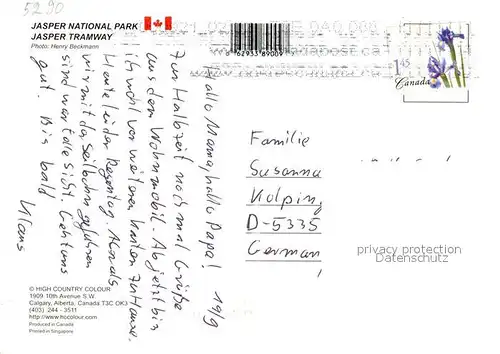 5290
JASPER NATIONAL PARK
JASPER TRAMWAY
Photo: Henry Beckmann
62933 89009
1.45
Canada
19/9
Hallo Mama, hallo Papa!
Zum Halbzeit nochmal Grüße
aus dem Wohnmobil. Ab jetzt bin
ich wohl vor weiteren Karten zuhause.
Heute leider Regentag. Abends
wir mit der Seilbahn gefahren
sind war tolle Sicht. Geht uns
gut. Bis bald
Klaus
Familie
Susanna
Kolping
D-5335
German
privacy protection
Datenschutz
© HIGH COUNTRY COLOUR
1909 10th Avenue S.W.
Calgary, Alberta, Canada T3C OK3
(403) 244 - 3511
http://www.hccolour.com
Produced in Canada
Printed in Singapore